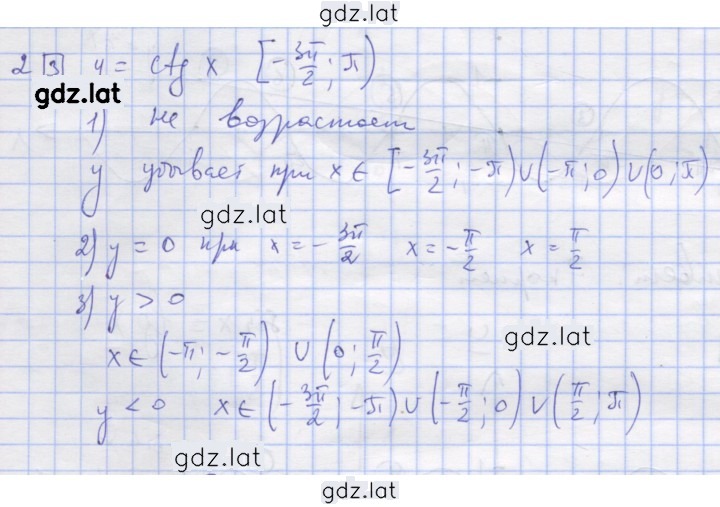 gdz.lat
2 3 y = ctg x [-3π/2; π)
gdz.lat
1) не возрастает
y убывает при x ∈ [-3π/2; -π) ∪ (-π; 0) ∪ (0; π)
gdz.lat
2) y = 0 при x = -3π/2 x = -π/2 x = π/2
3) y > 0
gdz.lat
x ∈ (-π; -π/2) ∪ (0; π/2)
y < 0 x ∈ (-3π/2; -π) ∪ (-π/2; 0) ∪ (π/2; π)
gdz.lat
gdz.lat